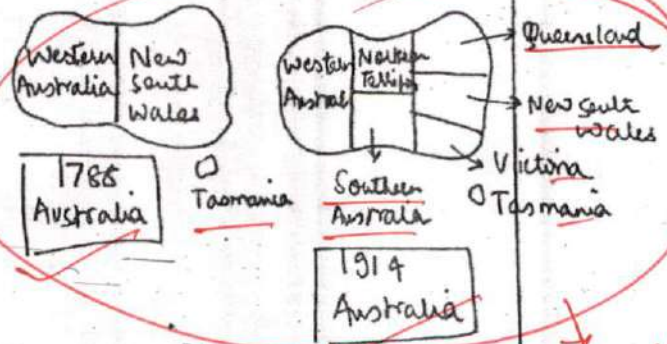 Western
Australia
New
South
Wales
1788
Australia
Tasmania
Western
Austral
Northern
Southern
Australia
Queensland
New South
Wales
Victoria
Tasmania
1914
Australia